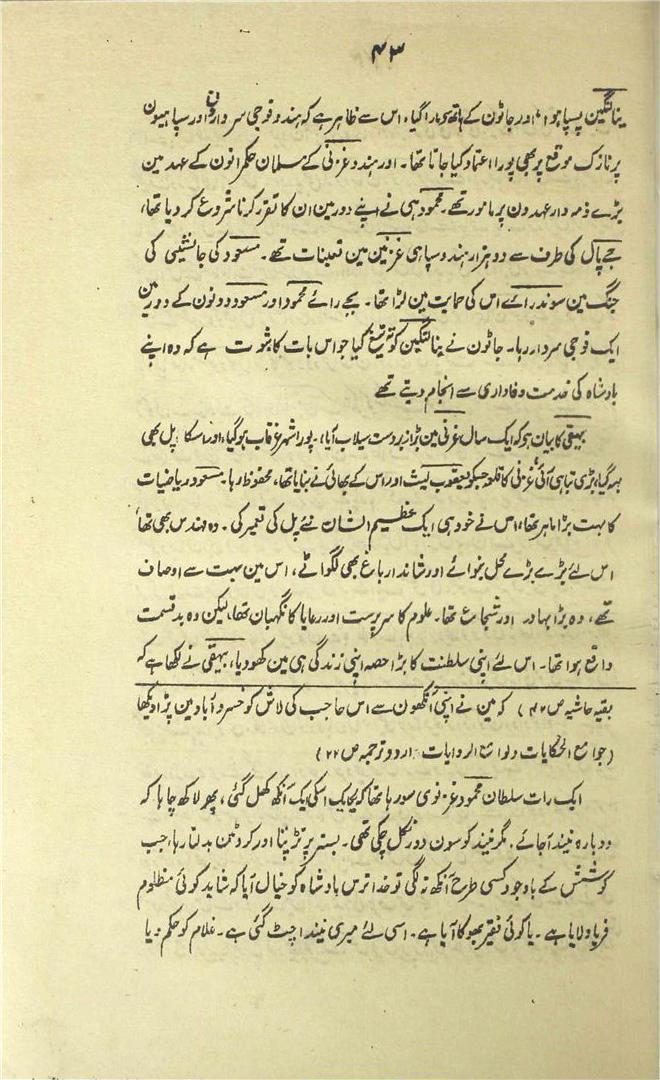 ۴۳
ینالتگین پسپا ہوا، اور جاٹون کے ہاتھ سے مارا گیا، اس سے ظاہر ہے کہ ہندو فوجی سردارون اور سپاہیون
پر نازک موقع پر بھی پورا اعتماد کیا جاتا تھا۔ اور ہندو غزنی کے مسلمان حکمرانون کے عہد مین
بڑے ذمہ دار عہدون پر مامور تھے۔ محمود ہی نے اپنے دور مین ان کا تقرر کرنا شروع کر دیا تھا،
جے پال کی طرف سے دو ہزار ہندو سپاہی غزنین مین تعینات تھے۔ مسعود کی جانشینی کی
جنگ مین سوندرائے اس کی حمایت مین لڑا تھا۔ بجے رائے محمود اور مسعود دونون کے دور مین
ایک فوجی سردار رہا۔ جاٹون نے ینالتگین کو تہ تیغ کیا جو اس بات کا ثبوت ہے کہ وہ اپنے
بادشاہ کی خدمت وفاداری سے انجام دیتے تھے
بیہقی کا بیان ہو کہ ایک سال غزنی مین بڑا زبردست سیلاب آیا، پورا شہر غرقاب ہوگیا، اور اسکا پل بھی
بہہ گیا، بڑی تباہی آئی، غزنی کا قلعہ جسکو یعقوب لیث اور اس کے بھائی نے بنایا تھا، محفوظ رہا۔ مسعود ریاضیات
کا بہت بڑا ماہر تھا، اس نے خود ہی ایک عظیم الشان نئے پل کی تعمیر کی۔ وہ مہندس بھی تھا
اس لئے بڑے بڑے محل بنوائے اور شاندار باغ بھی لگوائے، اس مین بہت سے اوصاف
تھے، وہ بڑا بہادر اور شجاع تھا۔ علوم کا سرپرست اور رعایا کا نگہبان تھا، لیکن وہ بدقسمت
واقع ہوا تھا۔ اس لئے اپنی سلطنت کا بڑا حصہ اپنی زندگی ہی مین کھودیا، بیہقی نے لکھا ہے کہ
بقیہ حاشیہ ص ۴۲) کہ مین نے اپنی آنکھون سے اس حاجب کی لاش کو خسرو آباد مین پڑا دیکھا
(جوامع الحکایات ولوامع الروایات۔ اردو ترجمہ ص ۲۲)
ایک رات سلطان محمود غزنوی سو رہا تھا کہ یکایک اسکی ایک آنکھ کھل گئی، پھر لاکھ چاہا کہ
دوبارہ نیند آجائے۔ مگر نیند کوسون دور نکل چکی تھی۔ بستر پر تڑپتا اور کروٹین بدلتا رہا، جب
کوشش کے باوجود کسی طرح آنکھ نہ لگی تو خدا ترس بادشاہ کو خیال آیا کہ شاید کوئی مظلوم
فریاد لایا ہے۔ یا کوئی فقیر بھوکا آیا ہے۔ اسی لئے میری نیند اچٹ گئی ہے۔ غلام کو حکم دیا